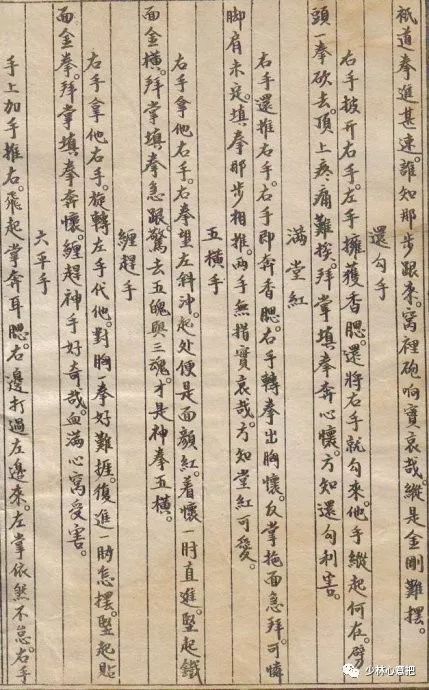 祇道拳進甚速。誰知那步跟來。窩裡砲响實哀哉。縱是金剛難擺。
還勾手
右手披开右手。左手擁獲香腮。還將右手就勾來。他手縱起何在。劈
頭一拳砍去。頂上疼痛難挨。拜掌填拳奔心懷。方知還勾利害。
滿堂紅
右手還推右手。右手即奔香腮。右手轉拳出胸懷。反掌拖面急拜。可憐
脚肩未定。填拳那步相推。两手無指實哀哉。方知堂紅可愛。
五橫手
右手拿他右手。右拳望左斜沖。起处便是面顏紅。着懷一肘直進。竪起鐵
面金橫。拜掌填拳急跟。驚去五魄與三魂。才是神拳五橫。
纏趕手
右手拿他右手。旋轉左手代他。對胸一拳好難捱。復進一肘怎擺。竪起貼
面金拳。拜掌填拳奔懷。纏趕神手好奇哉。血滿心窩受害。
六平手
手上加手推右。飛起掌奔耳腮。右邊打過左邊來。左掌依然不怠。右手
少林心意把